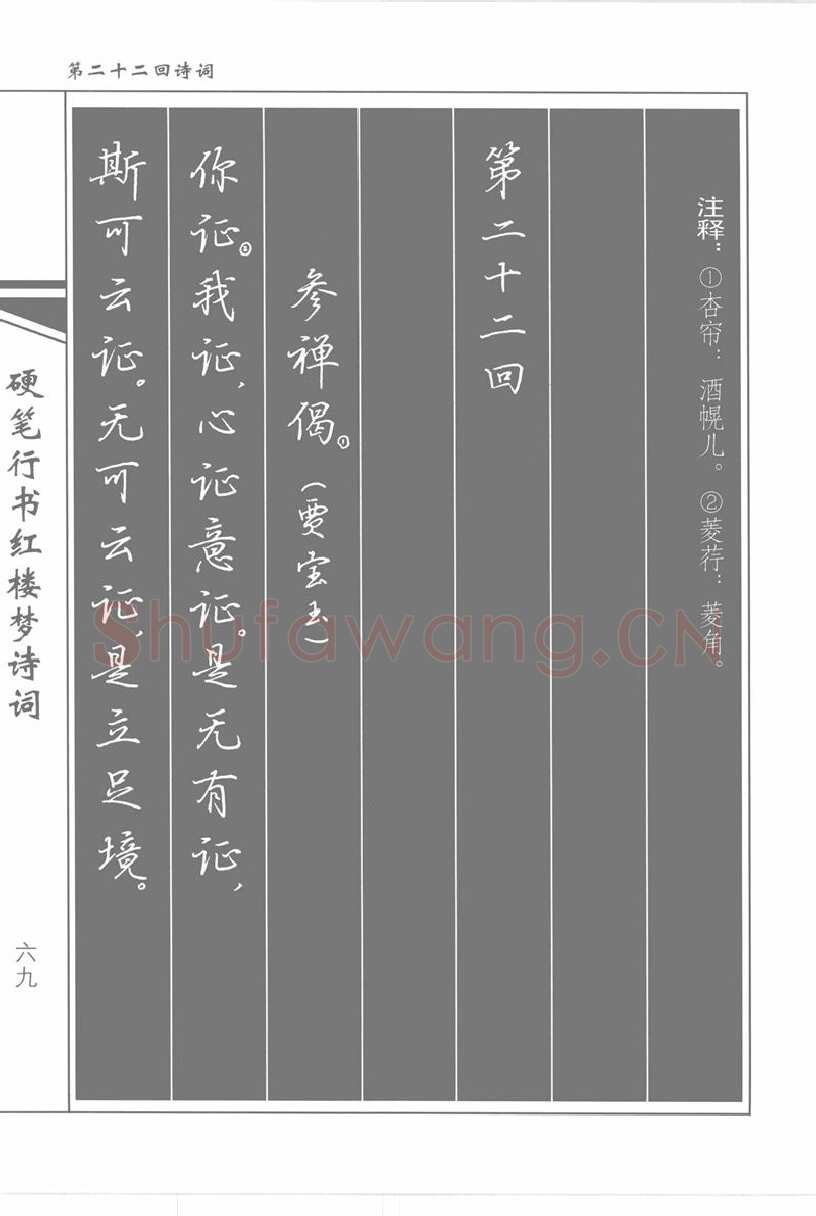 第二十二回诗词
注释：①杏帘：酒幌儿。②菱荇：菱角。
第二十二回
参禅偈。①（贾宝玉）
你证②。我证，心证意证。是无有证，
斯可云证。无可云证，是立足境。
硬笔行书红楼梦诗词
六九
Shufawang.CN